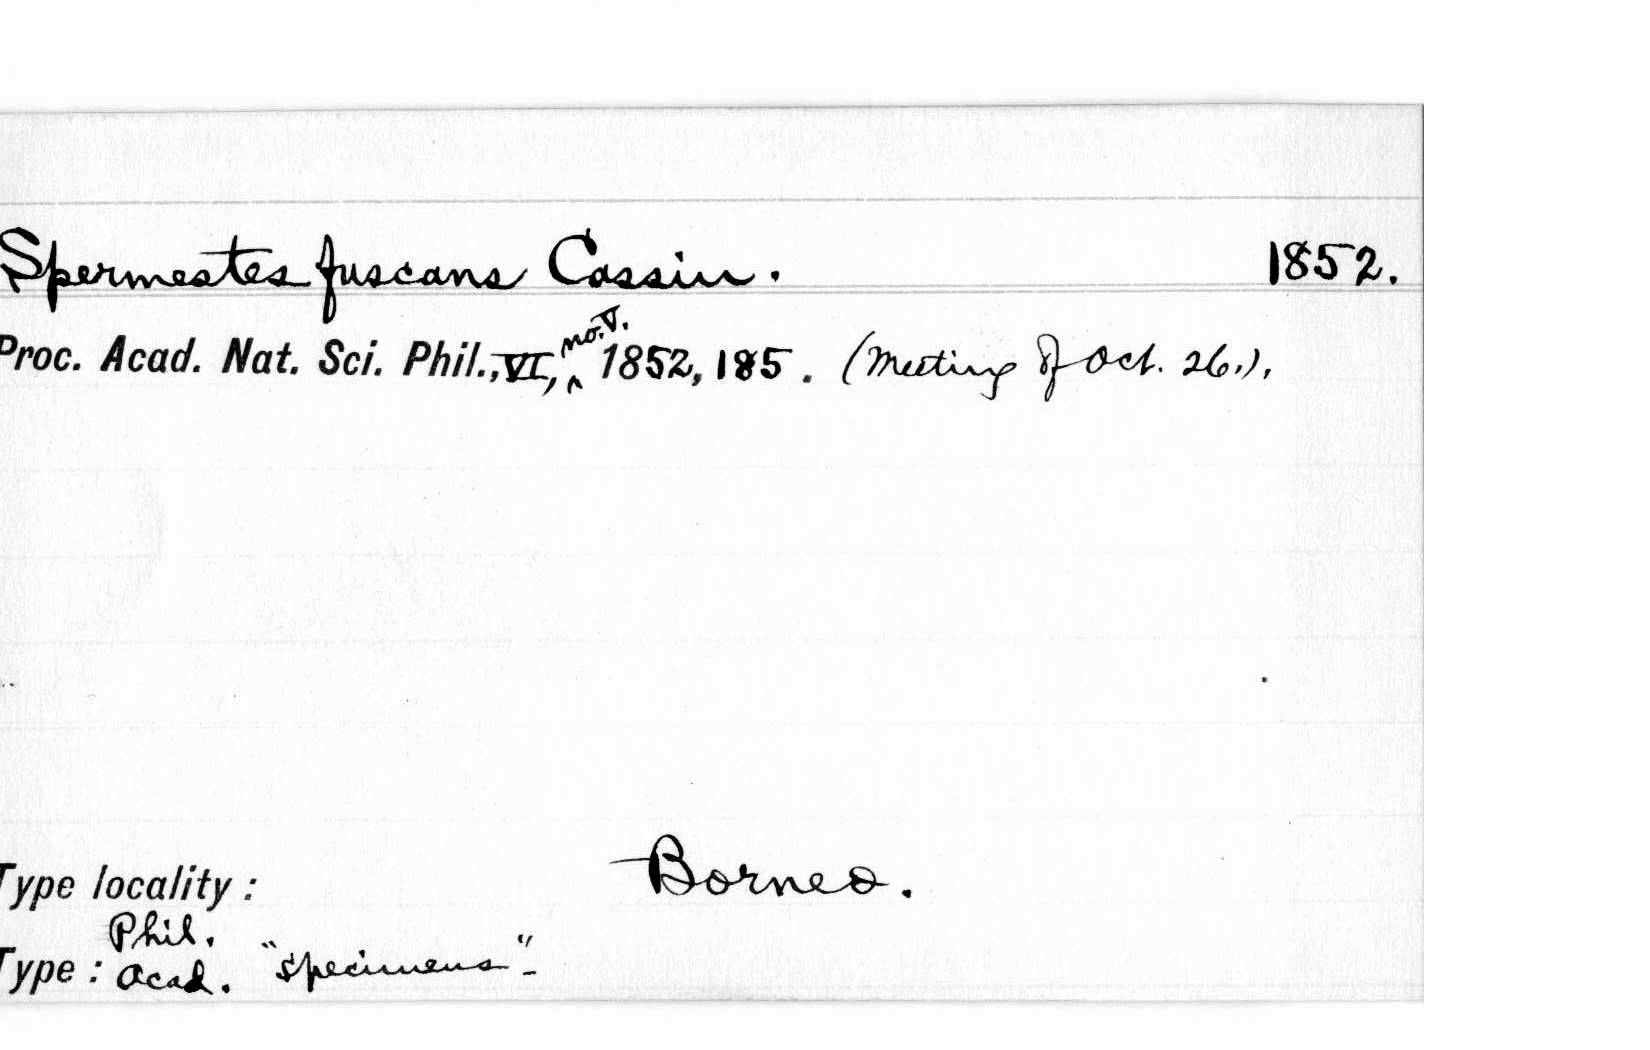 Spermestes fuscans Cassin. 1852.
Proc. Acad. Nat. Sci. Phil., VI, no. V. 1852, 185. (Meeting of Oct. 26.).
Type locality: Borneo.
Phil.
Type: Acad. "specimens"-